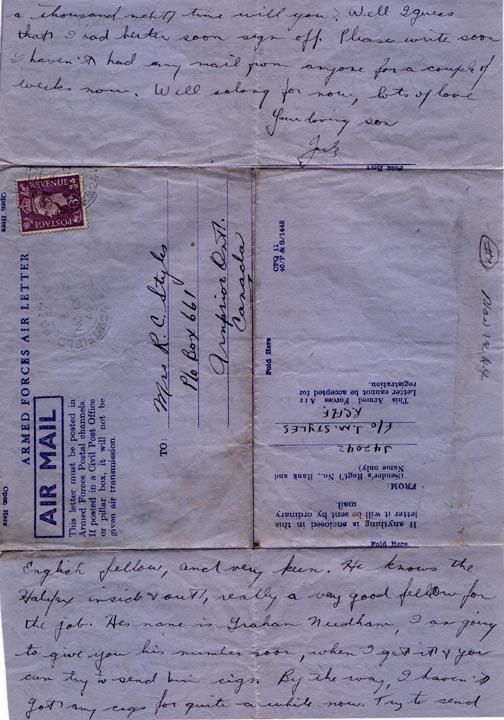 a thousand next time will you? Well I guess
that I had better soon sign off. Please write soon
I haven't had any mail from anyone for a couple of
weeks now. Well solong for now, lots of love
Your loving son
Jack
Fold Here
Open Here
REVENUE
POSTAGE
3D
ARMED FORCES AIR LETTER
AIR MAIL
This letter must be posted in
Armed Forces Postal channels.
If posted in a Civil Post Office
or pillar box, it will not be
given air transmission.
Open Here
TO:
Mrs R. C. Styles
P/o Box 661
Arnprior Ont.
Canada
Fold Here
GPQ 11
40/P & S/1448
This Armed Forces Air
Letter cannot be accepted for
registration.
R.C.A.F.
F/o J.W. STYLES
J42042
(Sender's Regt'l No., Rank and
Name only)
FROM:
If anything is enclosed in this
letter it will be sent by ordinary
mail
Fold Here
English fellow, and very keen. He knows the
Halifax inside & out, really a very good fellow for
the job. Hes name is Graham Needham, I am going
to give you his number soon, when I get it & you
can try & send him cigs. By the way, I haven't
got any cigs for quite a while now. Try to send